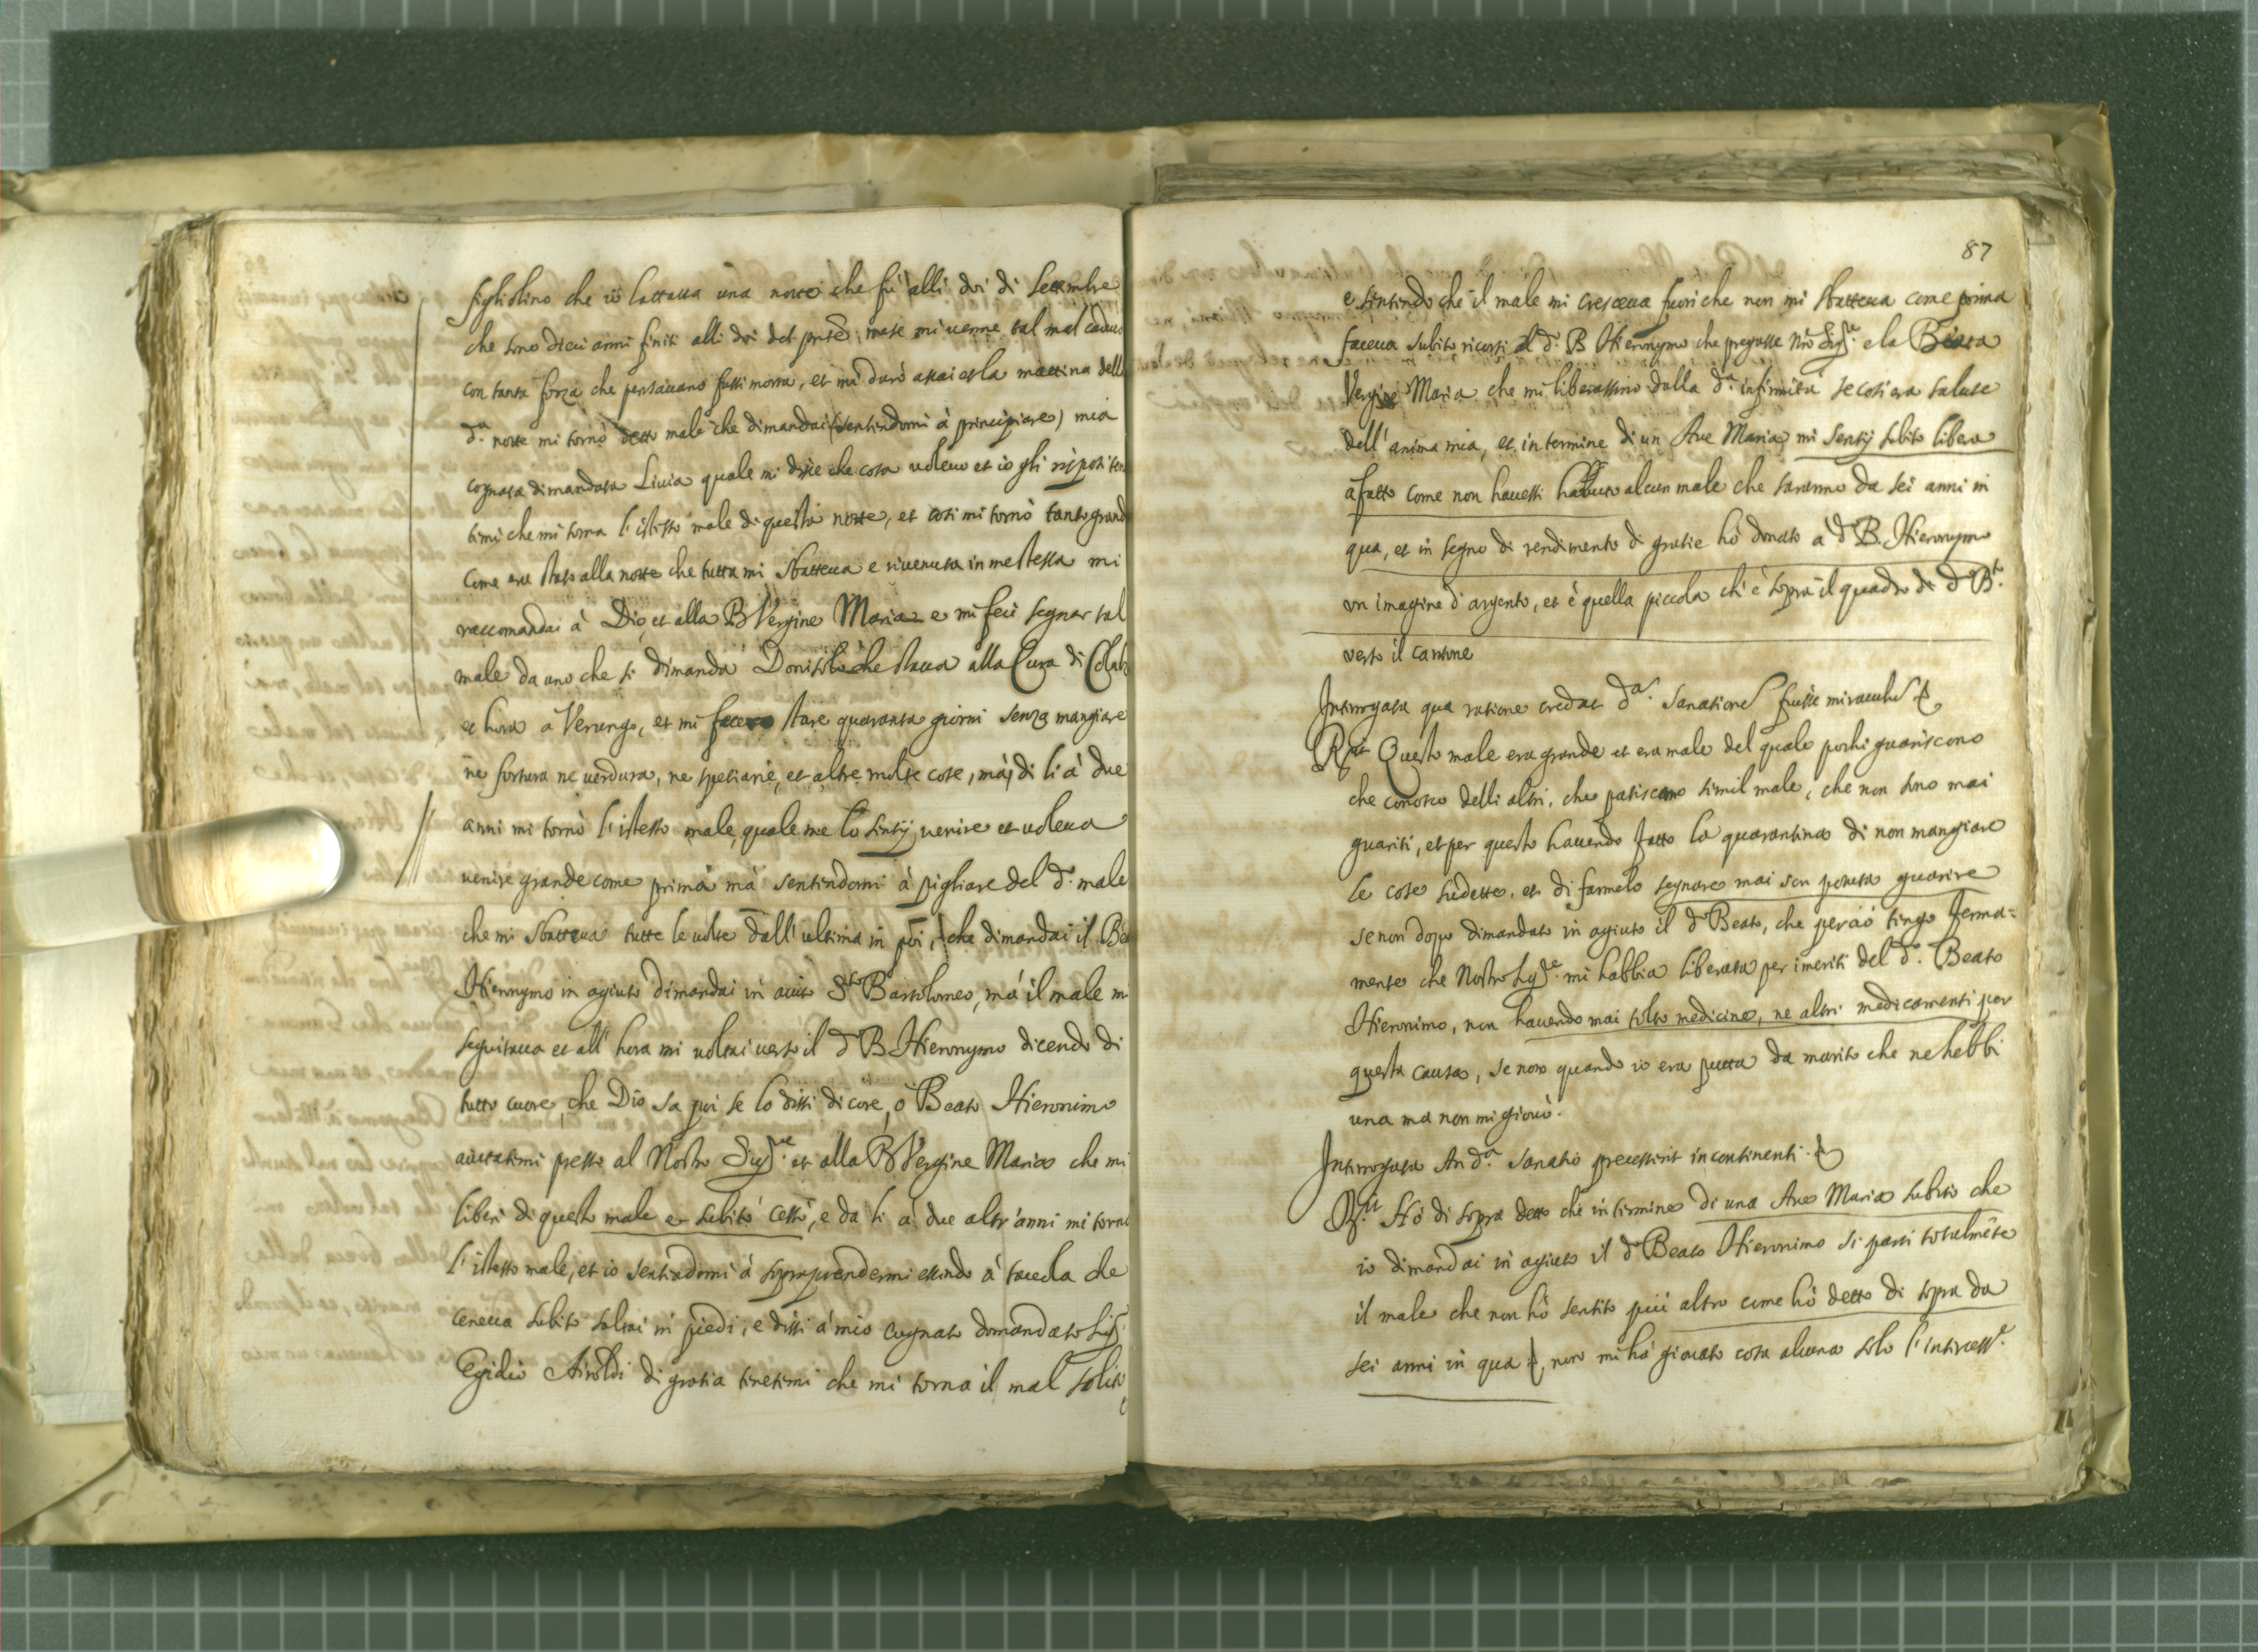 figliolino che io lattava una notte che fu alli doi di Settembre
che sono dieci anni finiti alli doi del pnte mese mi venne tal mal caduco
con tanta forza che pensavano fussi morta, et mi durò assai et la mattina della
d.ª notte mi tornò detto male che dimandai (sentendomi à principiare) mia
cognata dimandata Livia quale mi disse che cosa volevo et io gli risposi ten
timi che mi torna l'istesso male di questa notte, et così mi tornò tanto grand
come era stato alla notte che tutta mi sbatteva e rivenuta in me stessa mi
raccomandai à Dio, et alla B Vergine Maria e mi feci segnar tal
male da uno che si dimanda che stava alla Cura di
et hora a Verungo, et mi fece stare quaranta giorni senza mangiare
ne fortura ne verdura, ne spetiarie, et altre molte cose, mà, di li à due
anni mi tornò l'istesso male, quale me lo sentij venire et voleva
venire grande come prima mà sentendomi à pigliare del d.º male
che mi sbatteva tutte le volte dall'ultima in poi, che dimandai il Bea
Hieronymo in agiuto dimandai in aiuto S.to Bartolomeo, mà il male mi
seguitava et all'hora mi voltai verso il d.º B Hieronymo dicendo di
tutto cuore, che Dio sa poi se lo dissi di core, ò Beato Hieronimo
aiutatemi presso al Nostro Sig.re et alla B Vergine Maria che mi
liberi di questo male et subito cessò, e da li à due altr'anni mi torno
l'istesso male, et io sentendomi à sopraprendermi essendo à tavola che
cenava subito saltai in piedi, e dissi à mio cugnato domandato Sig.r
Egidio Airoldi di gratia tenetemi che mi torna il mal solito
87
e sentendo che il male mi cresceva fuori che non mi sbatteva come prima
faceva subito ricorsi al d.º B Hieronymo che pregasse Nr̃o Sig.re e la Beata
Vergine Maria che mi liberassino dalla d.ª infirmità se così era salute
dell'anima mia, et in termine di un Ave Maria mi sentij subito libera
afatto come non havessi havuto alcun male che saranno da sei anni in
qua, et in segno di rendimento di gratie hò donato à d.º B. Hieronymo
un imagine d'argento, et è quella piccola ch'è sopra il quadro di d.º B.to
verso il cantone
Interrogata qua ratione credat d.ª sanatione fuisse miraculu
R.it Questo male era grande et era male del quale pochi guariscono
che conosco delli altri, che patiscano simil male, che non sono mai
guariti, et per questo havendo fatto la quarantina di non mangiare
le cose sudette, et di farmelo segnare mai son potuta guarire
se non dopo dimandato in agiuto il d.º Beato, che perciò tengo ferma=
mente che Nostro Sig.re mi habbia liberata per i meriti del d.º Beato
Hieronimo, non havendo mai tolto medicine, ne altri medicamenti per
questa causa, se non quando io era putta da marito che ne hebbi
una ma non mi giovò.
Interrogata An d.ª sanatio precesserit incontinenti.
R.it Hò di sopra detto che in termine di una Ave Maria subito che
io dimandai in agiuto il d.º Beato Hieronimo si partì totalmẽte
il male che non hò sentito più altro come hò detto di sopra da
sei anni in qua, non mi hà giovato cosa alcuna solo l'intercess.e